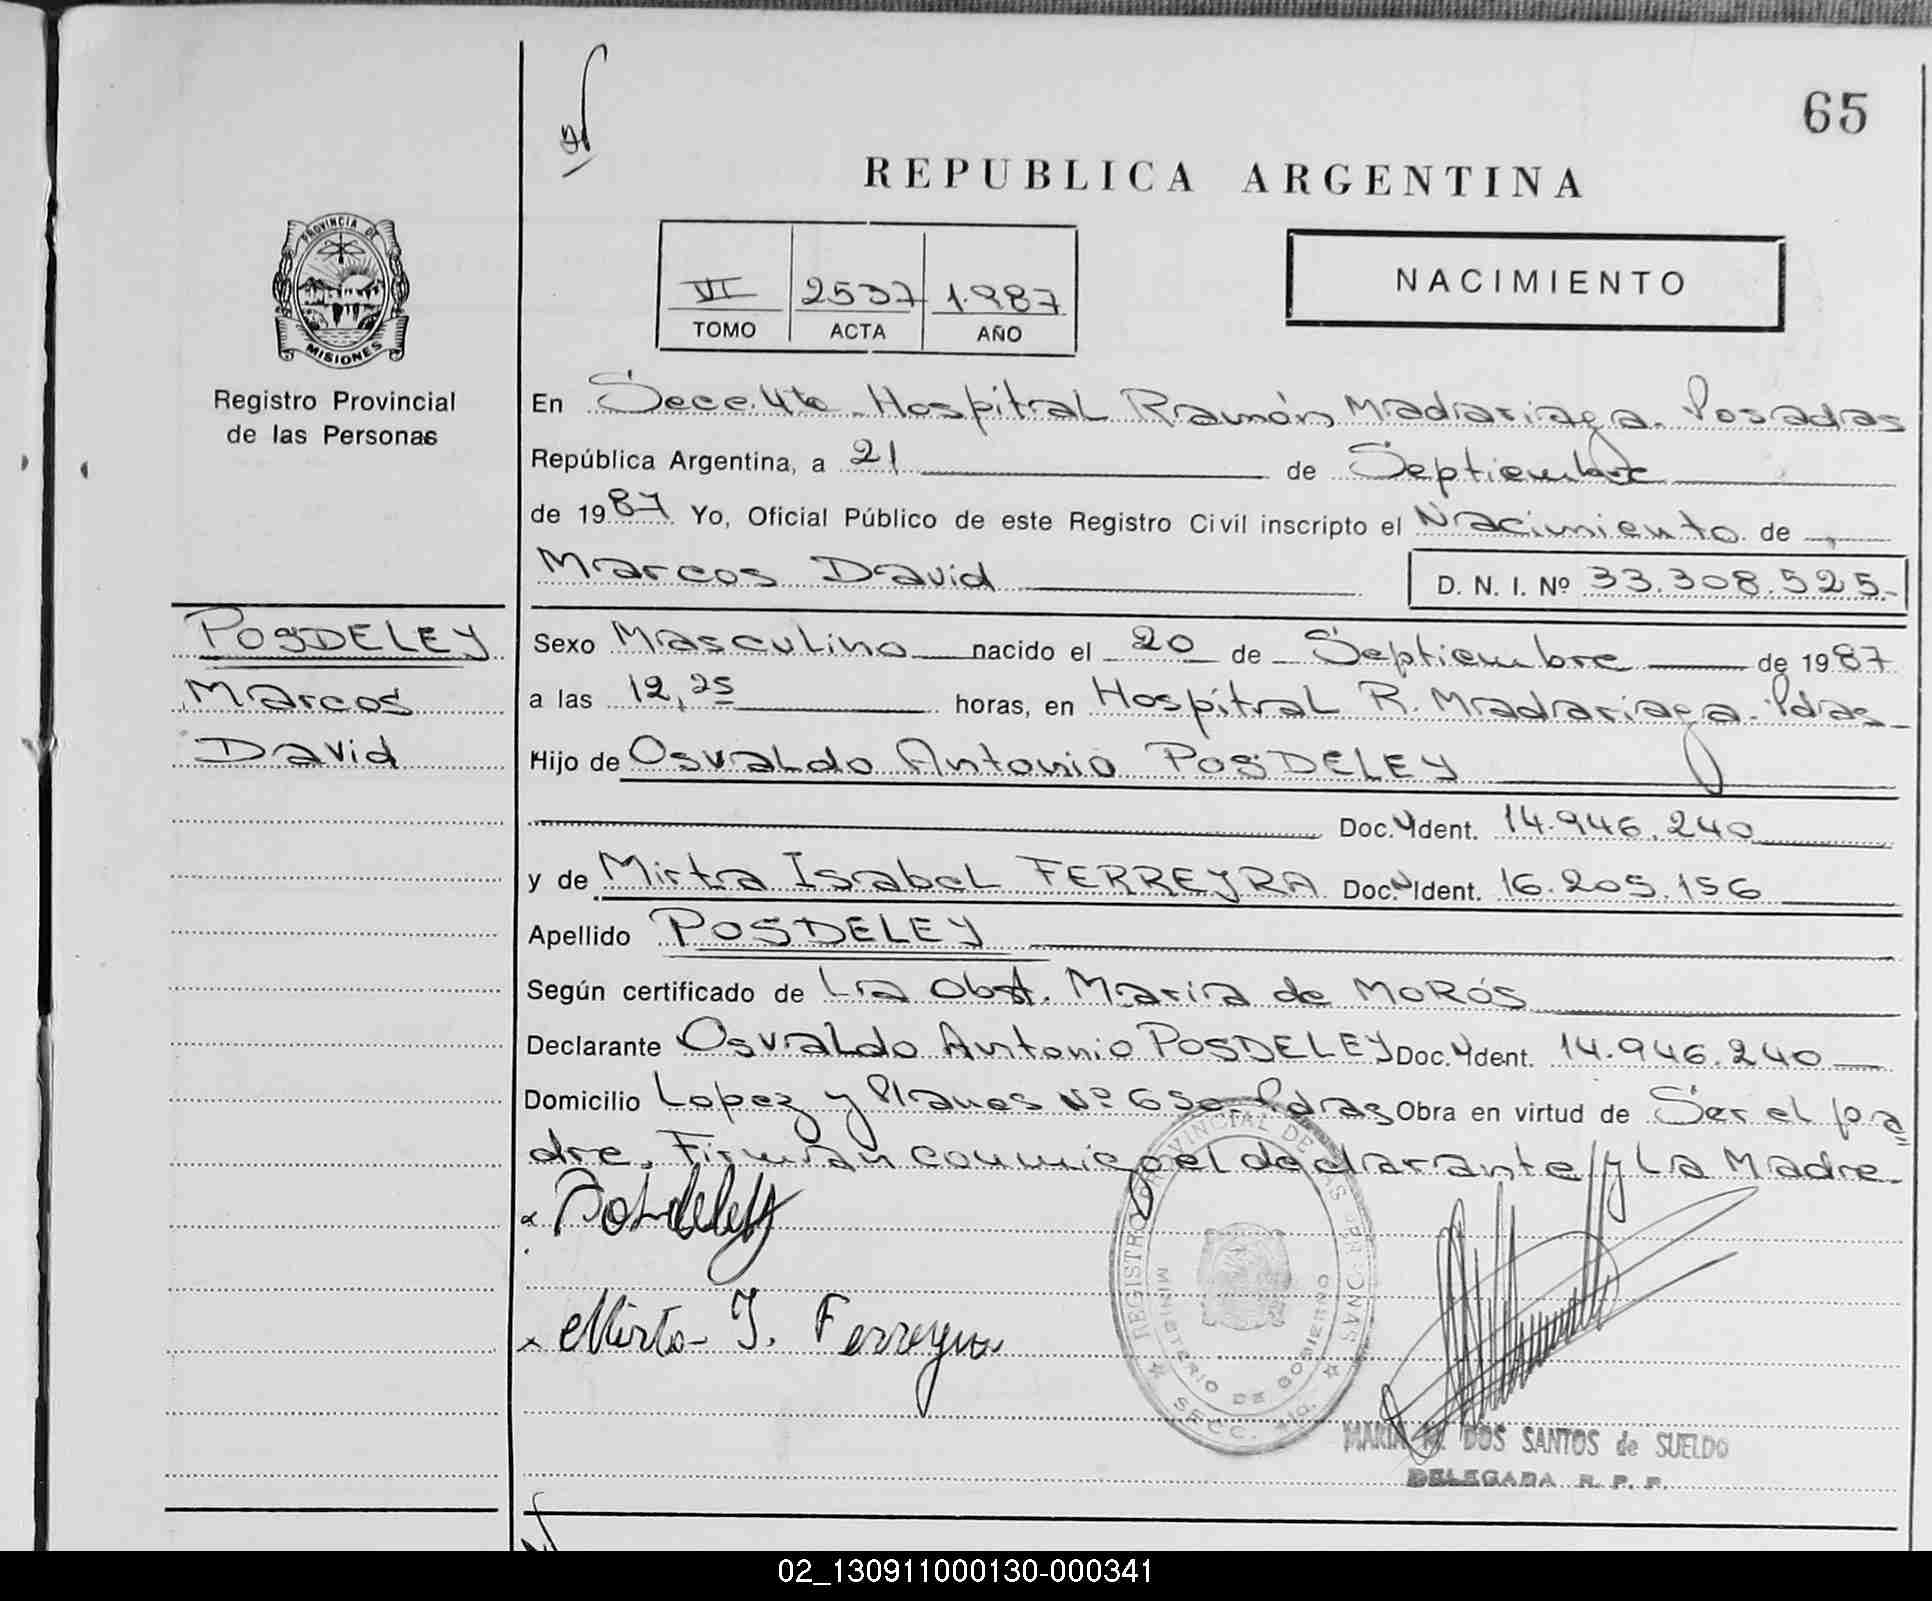 65
REPUBLICA ARGENTINA
PROVINCIA DE
MISIONES
VI 2537 1.987
TOMO ACTA AÑO
NACIMIENTO
Registro Provincial
de las Personas
En Secc. 4ta Hospital Ramón Madariaga. Posadas
República Argentina, a 21 de Septiembre
de 1987 Yo, Oficial Público de este Registro Civil inscripto el Nacimiento de
Marcos David D. N. I. Nº 33.308.525.-
POSDELEY
Marcos
David
Sexo Masculino nacido el 20 de Septiembre de 1987
a las 12,25 horas, en Hospital R. Madariaga. Pdas-
Hijo de Osvaldo Antonio POSDELEY
Doc. Ident. 14.946.240
y de Mirta Isabel FERREYRA Doc. Ident. 16.205.156
Apellido POSDELEY
Según certificado de La Obst. Maria de MOROS
Declarante Osvaldo Antonio POSDELEY Doc. Ident. 14.946.240
Domicilio Lopez y Planes Nº 650. Pdas Obra en virtud de Ser el pa
dre. Firman conmigo el declarante y La Madre.
x Posdeley
x Mirta I. Ferreyra
REGISTRO PROVINCIAL DE LAS PERSONAS
MINISTERIO DE GOBIERNO
SECC. 4ta.
MARIA DOS SANTOS de SUELDO
DELEGADA R. P. P.
02_130911000130-000341